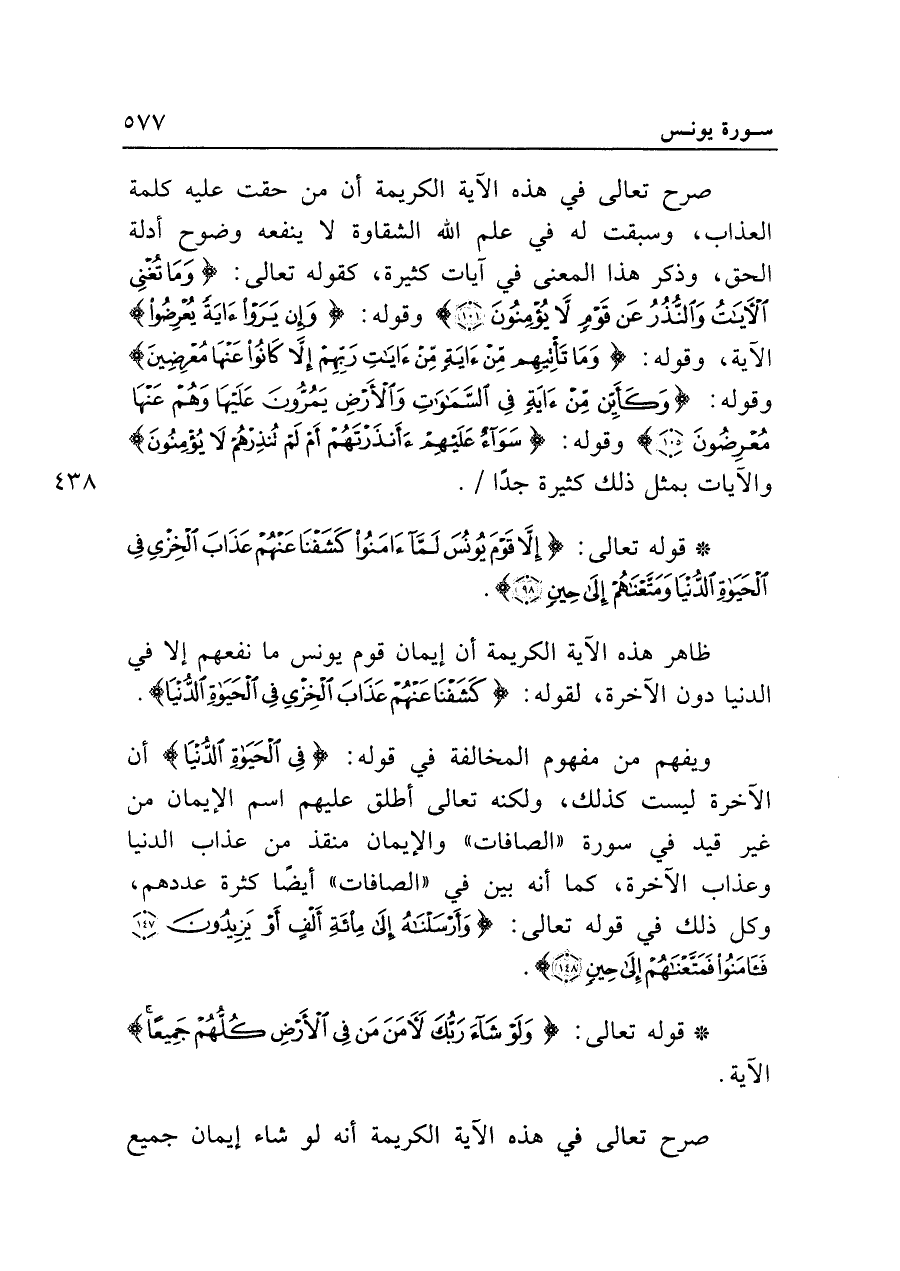 سورة يونس ٥٧٧
صرح تعالى في هذه الآية الكريمة أن من حقت عليه كلمة
العذاب، وسبقت له في علم الله الشقاوة لا ينفعه وضوح أدلة
الحق، وذكر هذا المعنى في آيات كثيرة، كقوله تعالى: ﴿ وَمَا تُغْنِي
ٱلْآيَٰتُ وَٱلنُّذُرُ عَن قَوْمٍ لَّا يُؤْمِنُونَ ١٠١﴾ وقوله: ﴿ وَإِن يَرَوْا۟ ءَايَةً يُعْرِضُوا۟ ﴾
الآية، وقوله: ﴿ وَمَا تَأْتِيهِم مِّنْ ءَايَةٍ مِّنْ ءَايَٰتِ رَبِّهِمْ إِلَّا كَانُوا۟ عَنْهَا مُعْرِضِينَ ﴾
وقوله: ﴿ وَكَأَيِّن مِّنْ ءَايَةٍ فِي ٱلسَّمَٰوَٰتِ وَٱلْأَرْضِ يَمُرُّونَ عَلَيْهَا وَهُمْ عَنْهَا
مُعْرِضُونَ ١٠٥﴾ وقوله: ﴿ سَوَآءٌ عَلَيْهِمْ ءَأَنذَرْتَهُمْ أَمْ لَمْ تُنذِرْهُمْ لَا يُؤْمِنُونَ ﴾
والآيات بمثل ذلك كثيرة جدًا / . ٤٣٨
* قوله تعالى: ﴿ إِلَّا قَوْمَ يُونُسَ لَمَّآ ءَامَنُوا۟ كَشَفْنَا عَنْهُمْ عَذَابَ ٱلْخِزْيِ فِي
ٱلْحَيَوٰةِ ٱلدُّنْيَا وَمَتَّعْنَٰهُمْ إِلَىٰ حِينٍ ٩٨﴾ .
ظاهر هذه الآية الكريمة أن إيمان قوم يونس ما نفعهم إلا في
الدنيا دون الآخرة، لقوله: ﴿ كَشَفْنَا عَنْهُمْ عَذَابَ ٱلْخِزْيِ فِي ٱلْحَيَوٰةِ ٱلدُّنْيَا ﴾ .
ويفهم من مفهوم المخالفة في قوله: ﴿ فِي ٱلْحَيَوٰةِ ٱلدُّنْيَا ﴾ أن
الآخرة ليست كذلك، ولكنه تعالى أطلق عليهم اسم الإيمان من
غير قيد في سورة «الصافات» والإيمان منقذ من عذاب الدنيا
وعذاب الآخرة، كما أنه بين في «الصافات» أيضًا كثرة عددهم،
وكل ذلك في قوله تعالى: ﴿ وَأَرْسَلْنَٰهُ إِلَىٰ مِا۟ئَةِ أَلْفٍ أَوْ يَزِيدُونَ ١٤٧
فَـَٔامَنُوا۟ فَمَتَّعْنَٰهُمْ إِلَىٰ حِينٍ ١٤٨﴾ .
* قوله تعالى: ﴿ وَلَوْ شَآءَ رَبُّكَ لَآمَنَ مَن فِي ٱلْأَرْضِ كُلُّهُمْ جَمِيعًا ۚ ﴾
الآية .
صرح تعالى في هذه الآية الكريمة أنه لو شاء إيمان جميع